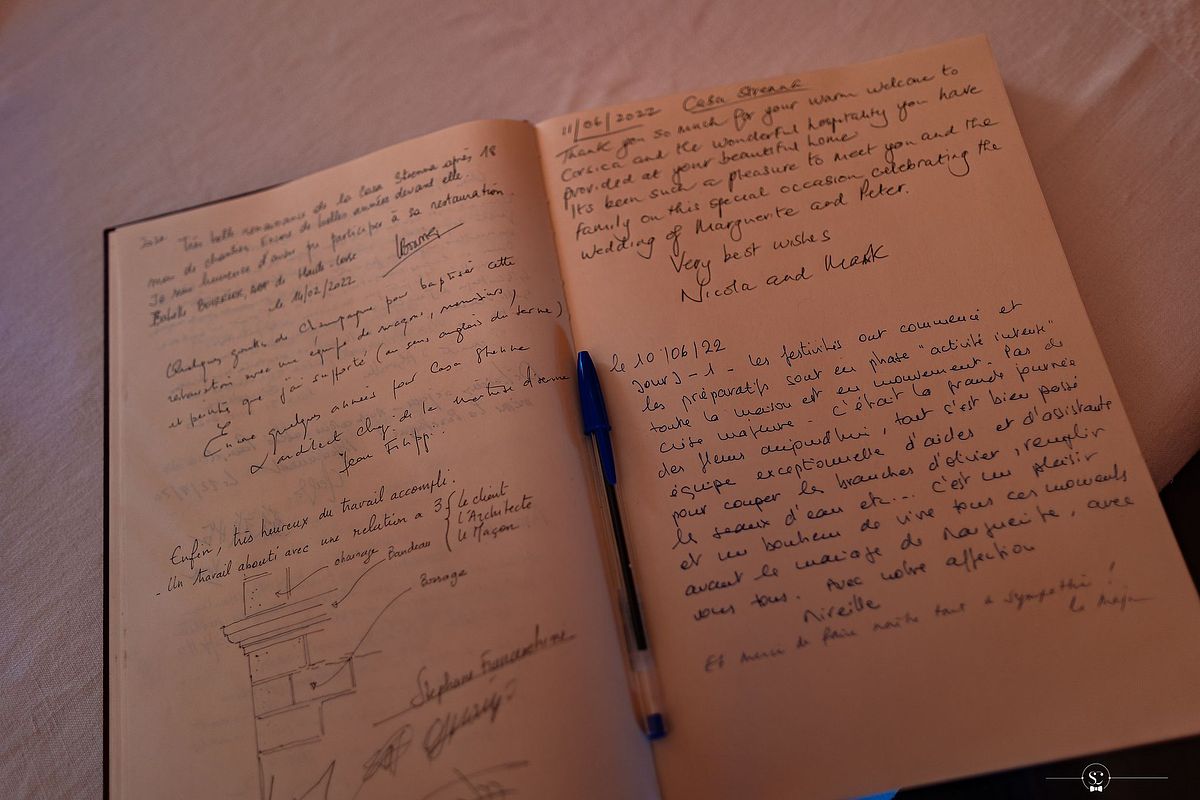 2022 Très belle renaissance de la Casa Strenna après 18
mois de chantier. Encore de belles années devant elle.
Je suis heureuse d'avoir pu participer à sa restauration.
ABF de Haute-Corse
le 16/02/2022
Quelques gouttes de Champagne pour baptiser cette
rénovation avec une équipe de maçons, menuisiers,
et peintres que j'ai supporté (au sens anglais du terme)
Encore quelques années pour Casa Strenna
L'architecte
Jean Filippi.
Enfin, très heureux du travail accompli.
- Un travail abouti avec une relation à 3 { le client
l'Architecte
le Maçon
chainage
Bandeau
Bossage
Stéphane
11/06/2022 Casa Strenna
Thank you so much for your warm welcome to
Corsica and the wonderful hospitality you have
provided at your beautiful home
It's been such a pleasure to meet you and the
family on this special occasion, celebrating the
wedding of Marguerite and Peter.
Very best wishes
Nicola and Mark
le 10/06/22
Jour J - 1 - les festivités ont commencé et
les préparatifs sont en phase "activité intense"
toute la maison est en mouvement - Pas de
crise majeure - c'était la grande journée
des fleurs aujourd'hui, tout s'est bien passé
équipe exceptionnelle d'aides et d'assistante
pour couper les branches d'olivier, remplir
les seaux d'eau etc... c'est un plaisir
et un bonheur de vivre tous ces moments
avant le mariage de Marguerite, avec
vous tous. Avec notre affection
Mireille
Et merci de faire tant de sympathie !
SC